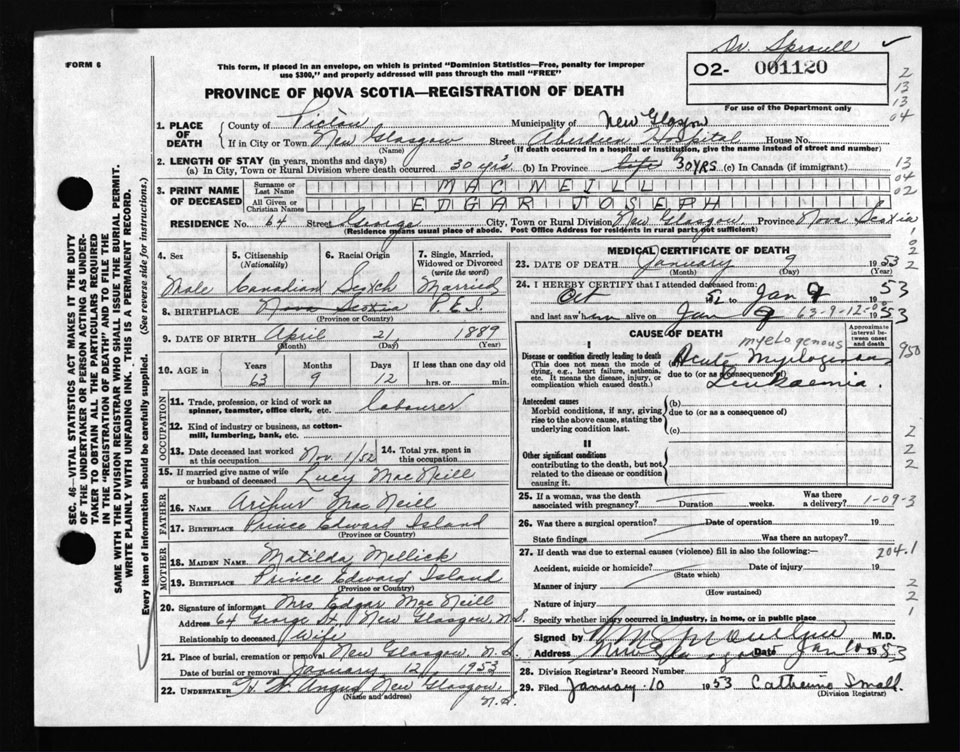 Dr. Sproull ✓
FORM 6
This form, if placed in an envelope, on which is printed "Dominion Statistics—Free, penalty for improper
use $300," and properly addressed will pass through the mail "FREE"
02- 001120
For use of the Department only
PROVINCE OF NOVA SCOTIA—REGISTRATION OF DEATH
2
13
13
04
1. PLACE OF DEATH { County of Pictou Municipality of New Glasgow
If in City or Town New Glasgow Street Aberdeen Hospital House No.
(Name) (If death occurred in a hospital or institution, give the name instead of street and number)
2. LENGTH OF STAY (in years, months and days)
(a) In City, Town or Rural Division where death occurred 30 yrs. (b) In Province 30 YRS (c) In Canada (if immigrant)
13
04
02
3. PRINT NAME OF DECEASED { Surname or Last Name MACNEILL
All Given or Christian Names EDGAR JOSEPH
RESIDENCE No. 64 Street George City, Town or Rural Division New Glasgow Province Nova Scotia
(Residence means usual place of abode. Post Office Address for residents in rural parts not sufficient)
4. Sex
Male
5. Citizenship
(Nationality)
Canadian
6. Racial Origin
Scotch
7. Single, Married,
Widowed or Divorced
(write the word)
Married
8. BIRTHPLACE Nova Scotia P.E.I.
(Province or Country)
9. DATE OF BIRTH April 21 1889
(Month) (Day) (Year)
10. AGE in { Years Months Days If less than one day old
63 9 12 hrs. or min.
OCCUPATION
11. Trade, profession, or kind of work as
spinner, teamster, office clerk, etc. labourer
12. Kind of industry or business, as cotton-
mill, lumbering, bank, etc.
13. Date deceased last worked
at this occupation Nov. 1/52
14. Total yrs. spent in
this occupation
15. If married give name of wife
or husband of deceased Lucy Mac Neill
FATHER
16. NAME Arthur Mac Neill
17. BIRTHPLACE Prince Edward Island
(Province or Country)
MOTHER
18. MAIDEN NAME Matilda Mellick
19. BIRTHPLACE Prince Edward Island
(Province or Country)
20. Signature of informant Mrs. Edgar Mac Neill
Address 64 George St., New Glasgow, N.S.
Relationship to deceased Wife
21. Place of burial, cremation or removal New Glasgow, N.S.
Date of burial or removal January 12 1953
22. UNDERTAKER H. W. Angus New Glasgow,
N.S.
(Name and address)
MEDICAL CERTIFICATE OF DEATH
23. DATE OF DEATH January 9 1953
(Month) (Day) (Year)
24. I HEREBY CERTIFY that I attended deceased from:
Oct 52 to Jan 9 1953
and last saw him alive on Jan 9 63-9-12- 1953
CAUSE OF DEATH
Approximate
interval be-
tween onset
and death
I
Disease or condition directly leading to death
(This does not mean the mode of
dying, e.g., heart failure, asthenia,
etc. It means the disease, injury, or
complication which caused death.)
myelogenous
(a) Acute Myelogenous
due to (or as a consequence of)
Leukaemia.
950
Antecedent causes
Morbid conditions, if any, giving
rise to the above cause, stating the
underlying condition last.
(b)
due to (or as a consequence of)
(c)
II
Other significant conditions
contributing to the death, but not
related to the disease or condition
causing it.
2
2
2
25. If a woman, was the death
associated with pregnancy? Duration weeks. Was there
a delivery? 1-09-3
26. Was there a surgical operation? Date of operation 19
State findings Was there an autopsy?
27. If death was due to external causes (violence) fill in also the following:—
204.1
Accident, suicide or homicide? Date of injury 19
(State which)
Manner of injury
(How sustained)
Nature of injury
2
2
1
Specify whether injury occurred in industry, in home, or in public place
Signed by M.D.
Address Date Jan 10 1953
28. Division Registrar's Record Number
29. Filed January 10 1953 Catherine Small.
(Division Registrar)
SEC. 46—VITAL STATISTICS ACT MAKES IT THE DUTY
OF THE UNDERTAKER OR PERSON ACTING AS UNDER-
TAKER TO OBTAIN ALL THE PARTICULARS REQUIRED
IN THE "REGISTRATION OF DEATH" AND TO FILE THE
SAME WITH THE DIVISION REGISTRAR WHO SHALL ISSUE THE BURIAL PERMIT.
WRITE PLAINLY WITH UNFADING INK. THIS IS A PERMANENT RECORD.
Every item of information should be carefully supplied. (See reverse side for instructions.)